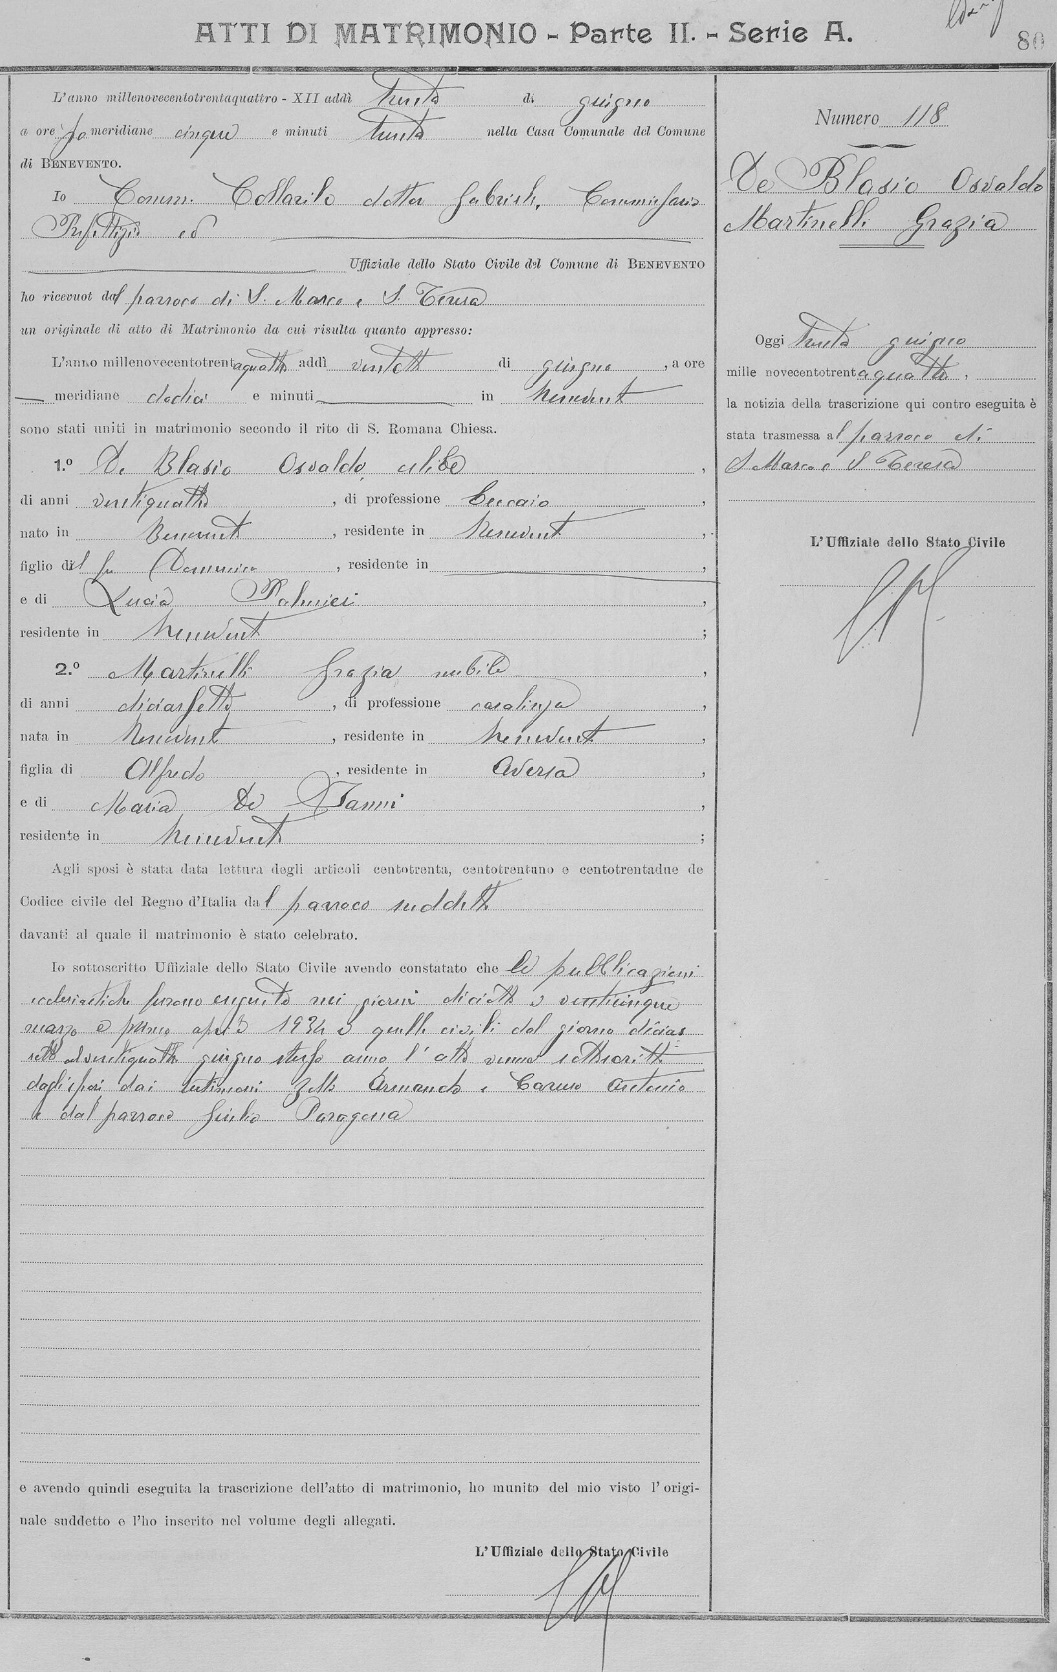 ATTI DI MATRIMONIO - Parte II. - Serie A.
80
L'anno millenovecentotrentaquattro - XII addì trenta di giugno
a ore po meridiane cinque e minuti trenta nella Casa Comunale del Comune
di BENEVENTO.
Io Comm. Collarile dottor Gabriele, Commissario
Prefettizio ed
Uffiziale dello Stato Civile del Comune di BENEVENTO
ho ricevuot dal parroco di S. Marco e S. Teresa
un originale di atto di Matrimonio da cui risulta quanto appresso:
L'anno millenovecentotrentaquattro addì ventotto di giugno, a ore
meridiane dodici e minuti in Benevento
sono stati uniti in matrimonio secondo il rito di S. Romana Chiesa.
1.º De Blasio Osvaldo, celibe,
di anni ventiquattro, di professione beccaio,
nato in Benevento, residente in Benevento,
figlio del fu Domenico, residente in,
e di Lucia Palmieri,
residente in Benevento;
2.º Martinelli Grazia nubile,
di anni diciassette, di professione casalinga,
nata in Benevento, residente in Benevento,
figlia di Alfredo, residente in Aversa,
e di Maria De Ianni,
residente in Benevento;
Agli sposi è stata data lettura degli articoli centotrenta, centotrentuno e centotrentadue de
Codice civile del Regno d'Italia dal parroco suddetto
davanti al quale il matrimonio è stato celebrato.
Io sottoscritto Uffiziale dello Stato Civile avendo constatato che le pubblicazioni
ecclesiastiche furono eseguite nei giorni diciotto e venticinque
marzo e primo aprile 1934 e quelle civili dal giorno dicias
sette al ventiquattro giugno stesso anno l'atto venne sottoscritto
dagli sposi, dai testimoni Armando e Caruso Antonio
e dal parroco Giulio
e avendo quindi eseguita la trascrizione dell'atto di matrimonio, ho munito del mio visto l'origi-
nale suddetto e l'ho inserito nel volume degli allegati.
L'Uffiziale dello Stato Civile
Numero 118
De Blasio Osvaldo
Martinelli Grazia
Oggi trenta giugno
mille novecentotrentaquattro,
la notizia della trascrizione qui contro eseguita è
stata trasmessa al parroco di
S. Marco e S. Teresa
L'Uffiziale dello Stato Civile